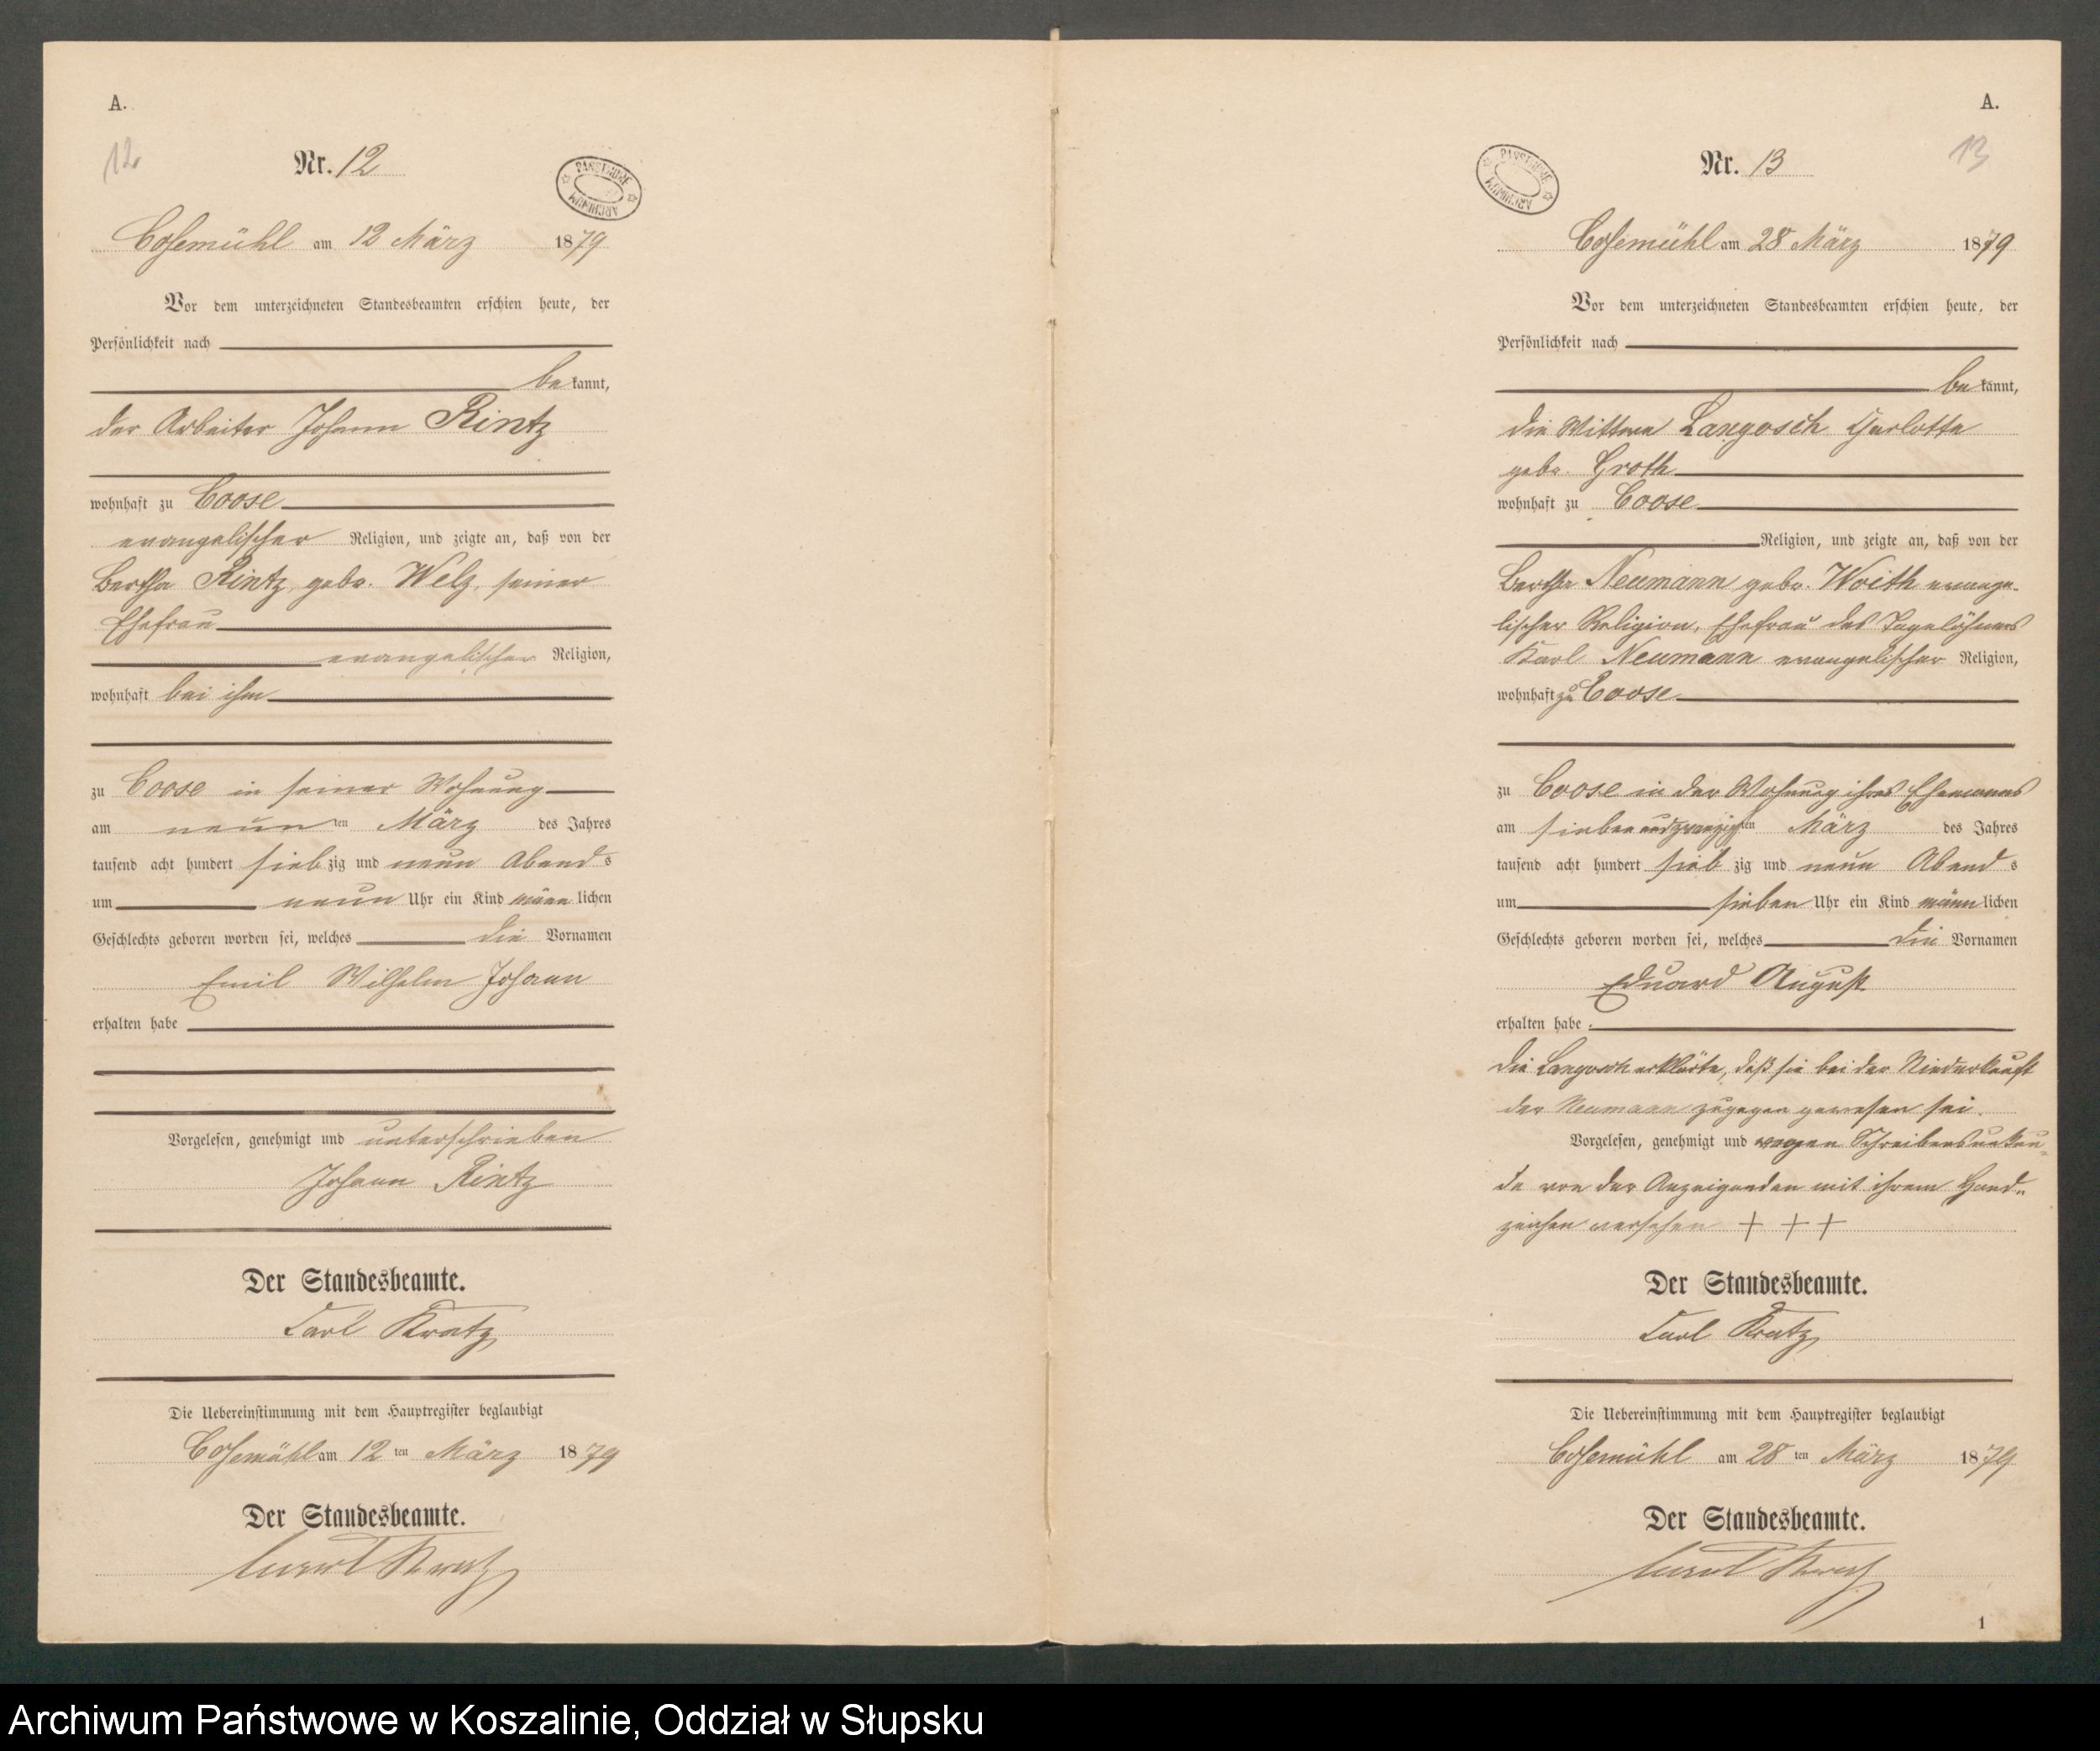 A.
12
Nr. 12
PAŃSTWOWE ARCHIWUM
Cosemühl am 12 März 1879
Vor dem unterzeichneten Standesbeamten erschien heute, der
Persönlichkeit nach
bekannt,
der Arbeiter Johann Rintz
wohnhaft zu Coose
evangelischer Religion, und zeigte an, daß von der
Bertha Rintz, gebr. Welz, seiner
Ehefrau
evangelischer Religion,
wohnhaft bei ihm
zu Coose in seiner Wohnung
am neunten März des Jahres
tausend acht hundert siebzig und neun Abends
um neun Uhr ein Kind männlichen
Geschlechts geboren worden sei, welches die Vornamen
Emil Wilhelm Johann
erhalten habe
Vorgelesen, genehmigt und unterschrieben
Johann Rintz
Der Standesbeamte.
Carl Kratz
Die Uebereinstimmung mit dem Hauptregister beglaubigt
Cosemühl am 12ten März 1879
Der Standesbeamte.
Carl Kratz
A.
13
Nr. 13
PAŃSTWOWE ARCHIWUM
Cosemühl am 28 März 1879
Vor dem unterzeichneten Standesbeamten erschien heute, der
Persönlichkeit nach
bekannt,
die Wittwe Langosch Charlotte
gebr. Groth
wohnhaft zu Coose
Religion, und zeigte an, daß von der
Bertha Neumann gebr. Woith evange-
lischer Religion, Ehefrau des Tagelöhners
Karl Neumann evangelischer Religion,
wohnhaft zu Coose
zu Coose in der Wohnung ihres Ehemanns
am siebenundzwanzigsten März des Jahres
tausend acht hundert siebzig und neun Abends
um sieben Uhr ein Kind männlichen
Geschlechts geboren worden sei, welches die Vornamen
Eduard August
erhalten habe.
die Langosch erklärte, daß sie bei der Niederkunft
der Neumann zugegen gewesen sei.
Vorgelesen, genehmigt und wegen Schreibensunkun-
de von der Anzeigenden mit ihrem Hand-
zeichen versehen + + +
Der Standesbeamte.
Carl Kratz
Die Uebereinstimmung mit dem Hauptregister beglaubigt
Cosemühl am 28ten März 1879
Der Standesbeamte.
Carl Kratz
1
Archiwum Państwowe w Koszalinie, Oddział w Słupsku